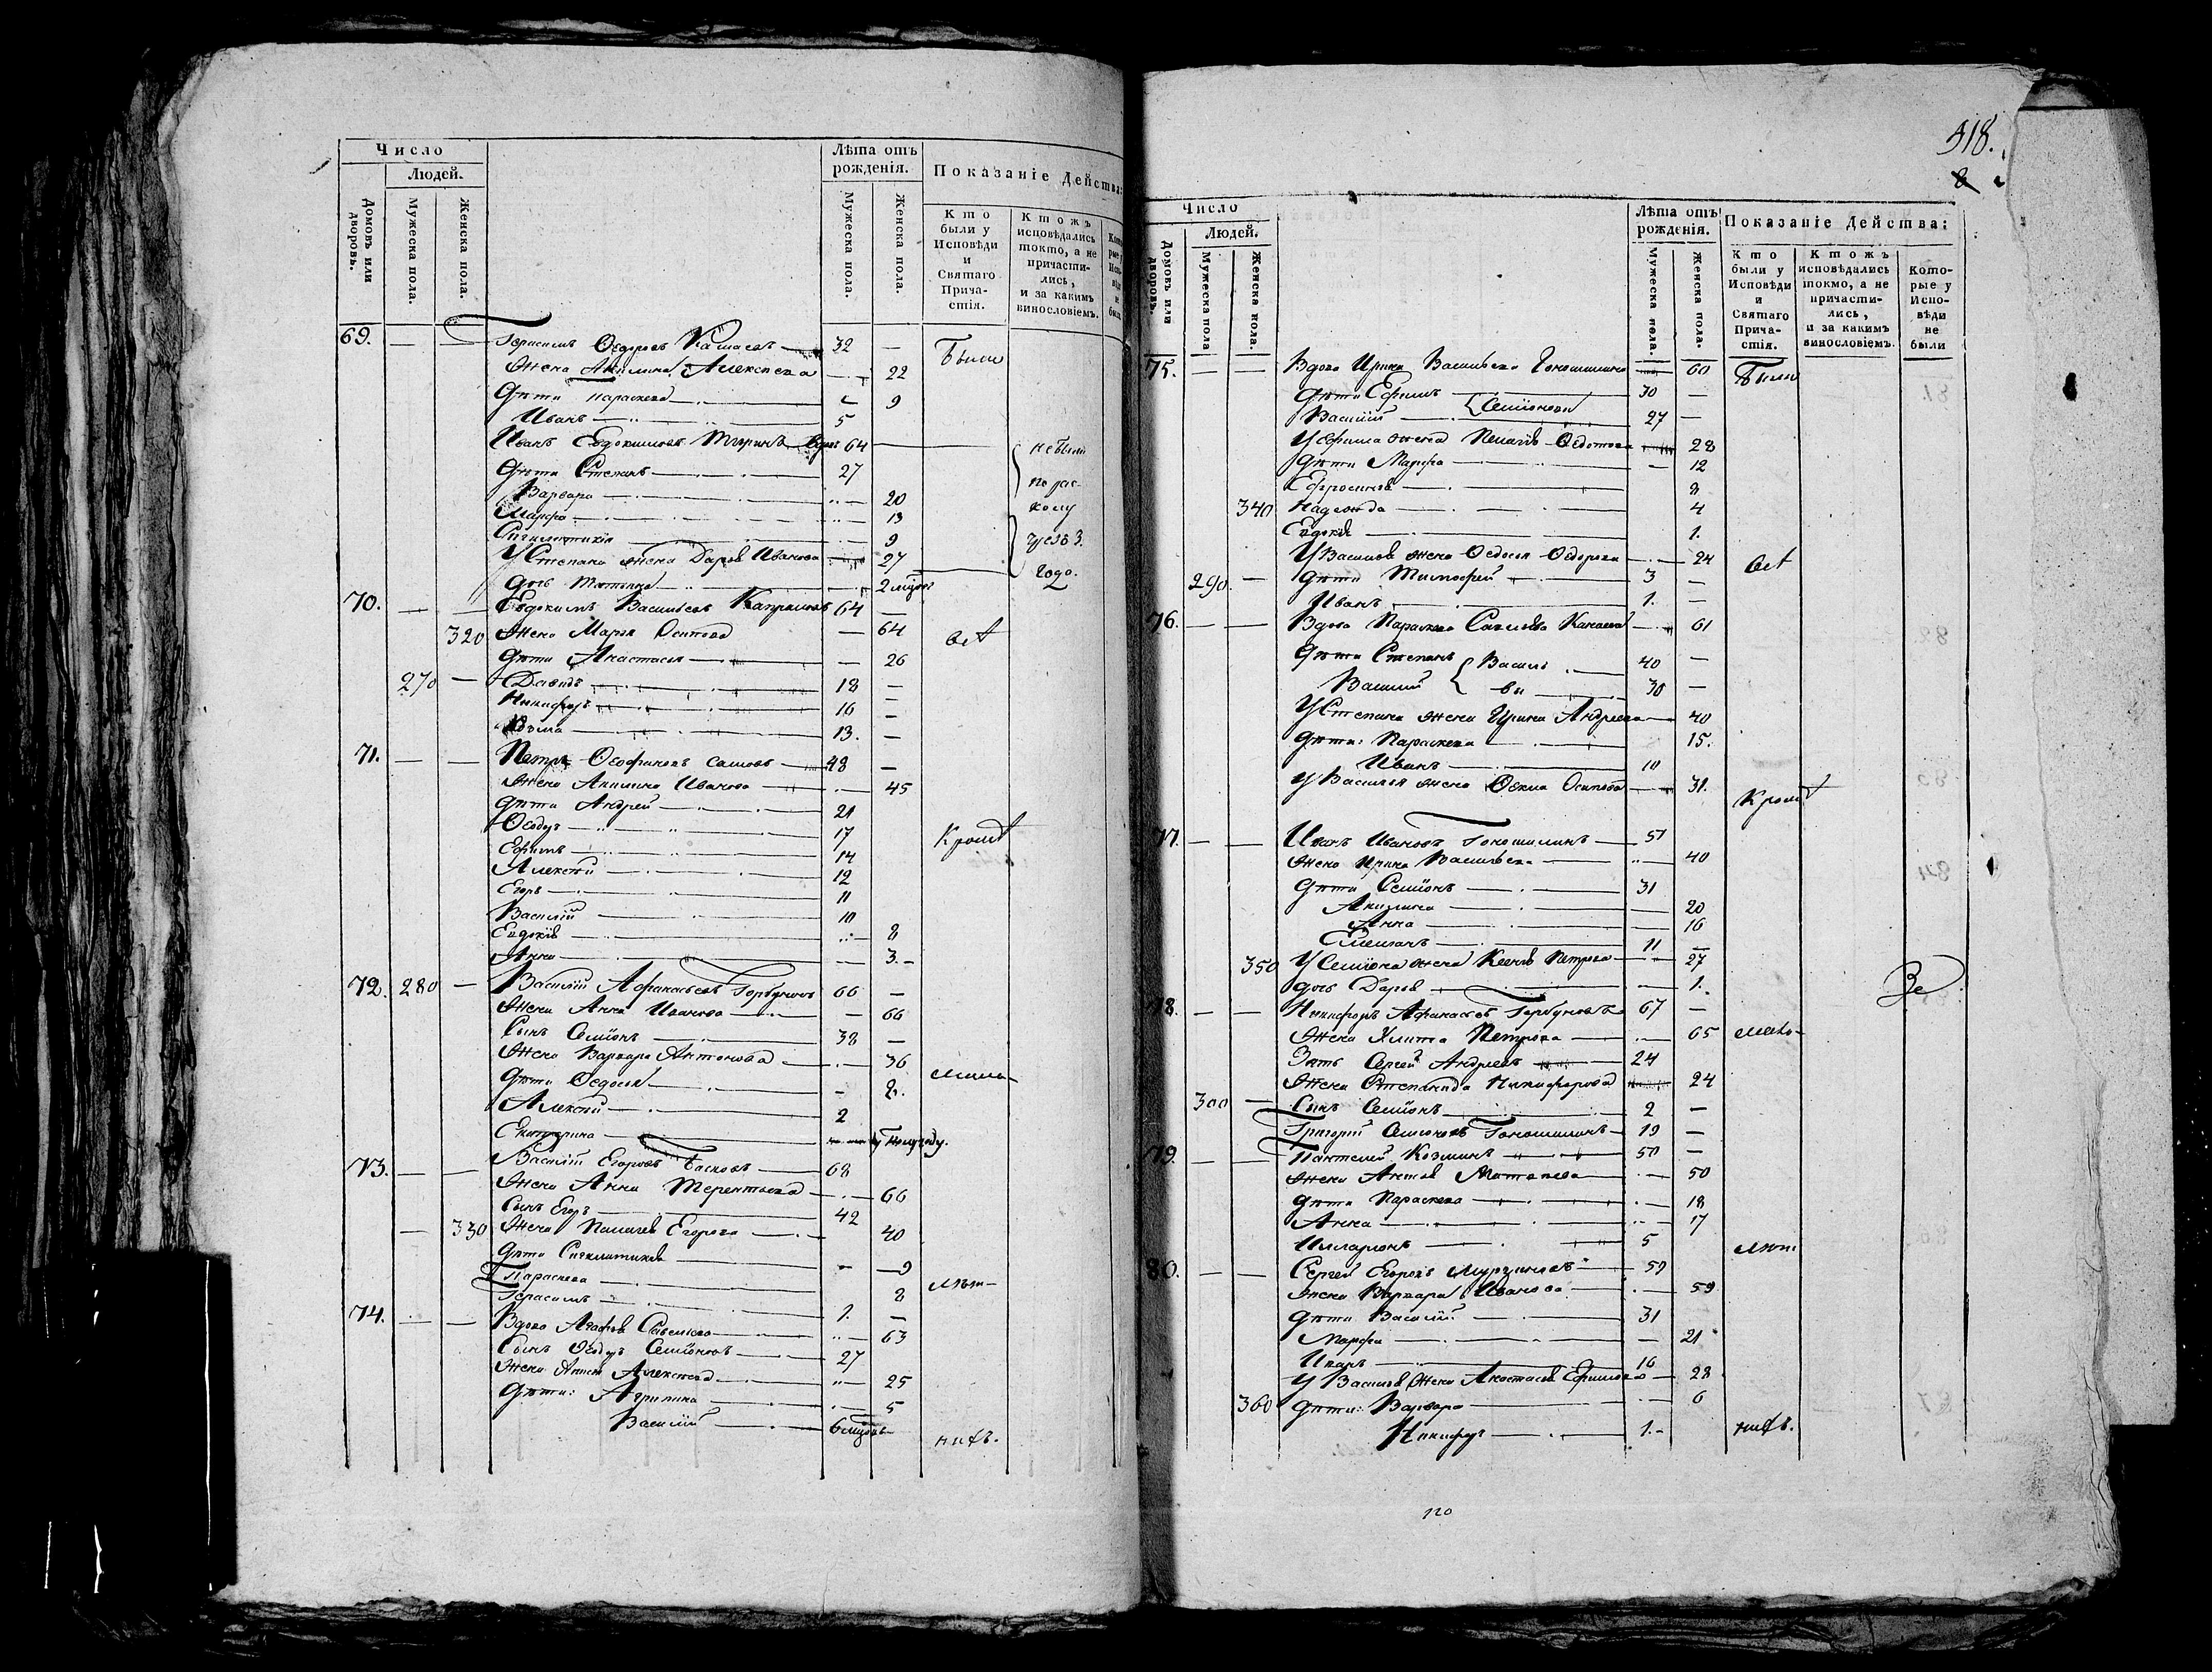 Число
Людей.
Домовъ или дворовъ.
Мужеска пола.
Женска пола.
Лѣта отъ рожденія.
Мужеска пола.
Женска пола.
Показаніе Действа:
Кто были у Исповѣди и Святаго Прича-стія.
Ктожъ исповѣдались токмо, а не причасти-лись, и за какимъ винословіемъ.
69. Герасимъ Ѳедоровъ 32
Жена Акилина Алексеева 22
Дѣти Параскева 9
Иванъ 5
Иванъ Евдокимовъ вдовъ 64
Дѣти Степанъ 27
Варвара 20
Марфа 13
Синклитикія 9
У Степана жена Дарья Иванова 27
Дочь Татьяна 2
Были
не были
70. Евдокимъ Васильевъ 64
320 Жена Марья Осипова 64
Дѣти Анастасья 26
270 Давидъ 18
Никифоръ 16
13.
всѣ
71. Петръ Ѳеофановъ 48
Жена Акилина Иванова 45
Дѣти Андрей 21
Ѳеодоръ 17
Ефимъ 14
Алексѣй 12
Егоръ 11
Василій 10
Евдокія 8
Анна 3.
Кромѣ
72. 280 Василій Афанасьевъ Горбуновъ 66
Жена Анна Иванова 66
Сынъ Семіонъ 38
Жена Варвара Антонова 36
Дѣти Ѳедосья 8.
Алексѣй 2
Екатерина полугоду.
мало-
73. Василій Егоровъ Басковъ 68
Жена Анна Терентьева 66
Сынъ Егоръ 42
330 Жена Пелагея Егорова 40
Дѣти Синклитикія 9
Параскева 8
Герасимъ 1.
лѣт-
74. Вдова Агафья Савельева 63
Сынъ Ѳеодоръ Семіоновъ 27
Жена Алексѣева 25
Дѣти: Агрипина 5
Василій 6 мѣсяцъ
нихъ.
418.
8
Число
Людей.
Домовъ или дворовъ.
Мужеска пола
Женска пола.
Лѣта отъ рожденія.
Мужеска пола.
Женска пола.
Показаніе Действа:
Кто были у Исповѣди и Святаго Прича-стія.
Ктожъ исповѣдались токмо, а не причасти-лись, и за какимъ винословіемъ.
Кото-рые у Испо-вѣди не были
75. Вдова Ирина Васильева Гоношилина 60
Дѣти Ефимъ 30
Василій Семіоновы 27
У Ефима жена Пелагея Ѳедотова 28
Дѣти Марфа 12
Ефросинья 8
340 Надежда 4
Евдокія 1.
У Василья жена Ѳедосья Ѳедорова 24
290. Дѣти Тимофей 3
Иванъ 1.
Были
всѣ
76. Вдова Параскева Савельева 61
Дѣти Степанъ Василь 40
Василій вы 30
У Степана жена Ирина Андреева 40
Дѣти: Параскева 15.
Иванъ 10
У Василья жена Ѳекла Осипова 31.
Кромѣ
77. Иванъ Ивановъ Гоношилинъ 57
Жена Ирина Васильева 40
Дѣти Семіонъ 31
Акилина 20
Анна 16
Емельянъ 11
350 У Семіона жена Ксенія Петрова 27
дочь Дарья 1.
78. Никифоръ Афанасьевъ Горбуновъ 67
Жена Улита Петрова 65
Зять Сергей Андреевъ 24
Жена Степанида Никифорова 24
300 Сынъ Семіонъ 2
Григорій Семіоновъ Гоношилинъ 19
мало-
79. Пантелей Козминъ 50
Жена Матвеева 50
Дѣти Параскева 18
Анна 17
Илларіонъ 5
лѣт
80. Сергей Егоровъ 59
Жена Варвара Иванова 59
Дѣти Василій 31
Марфа 21
Иванъ 16
У Василья жена Анастасья Ефимова 28
360 Дѣти: Варвара 6
Никифоръ 1.
нихъ.
120